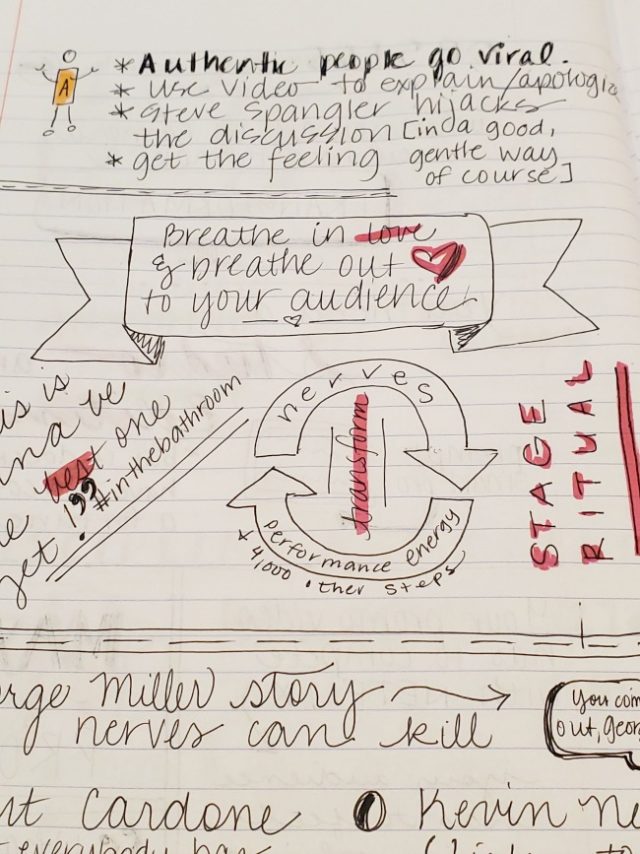 A
* Authentic people go viral.
* use video to explain/apologiz
* Steve Spangler hijacks
the discussion [inda good,
* get the feeling gentle way
of course]
Breathe in love
& breathe out
to your audience
is is
nna be
e best one
yet!!! #inthebathroom
nerves
transform
performance energy
+ 4,000 other steps
STAGE
RITUAL
orge Miller story
nerves can kill
You com
out, geor
nt Cardone
Kevin Ne
everybody has
to